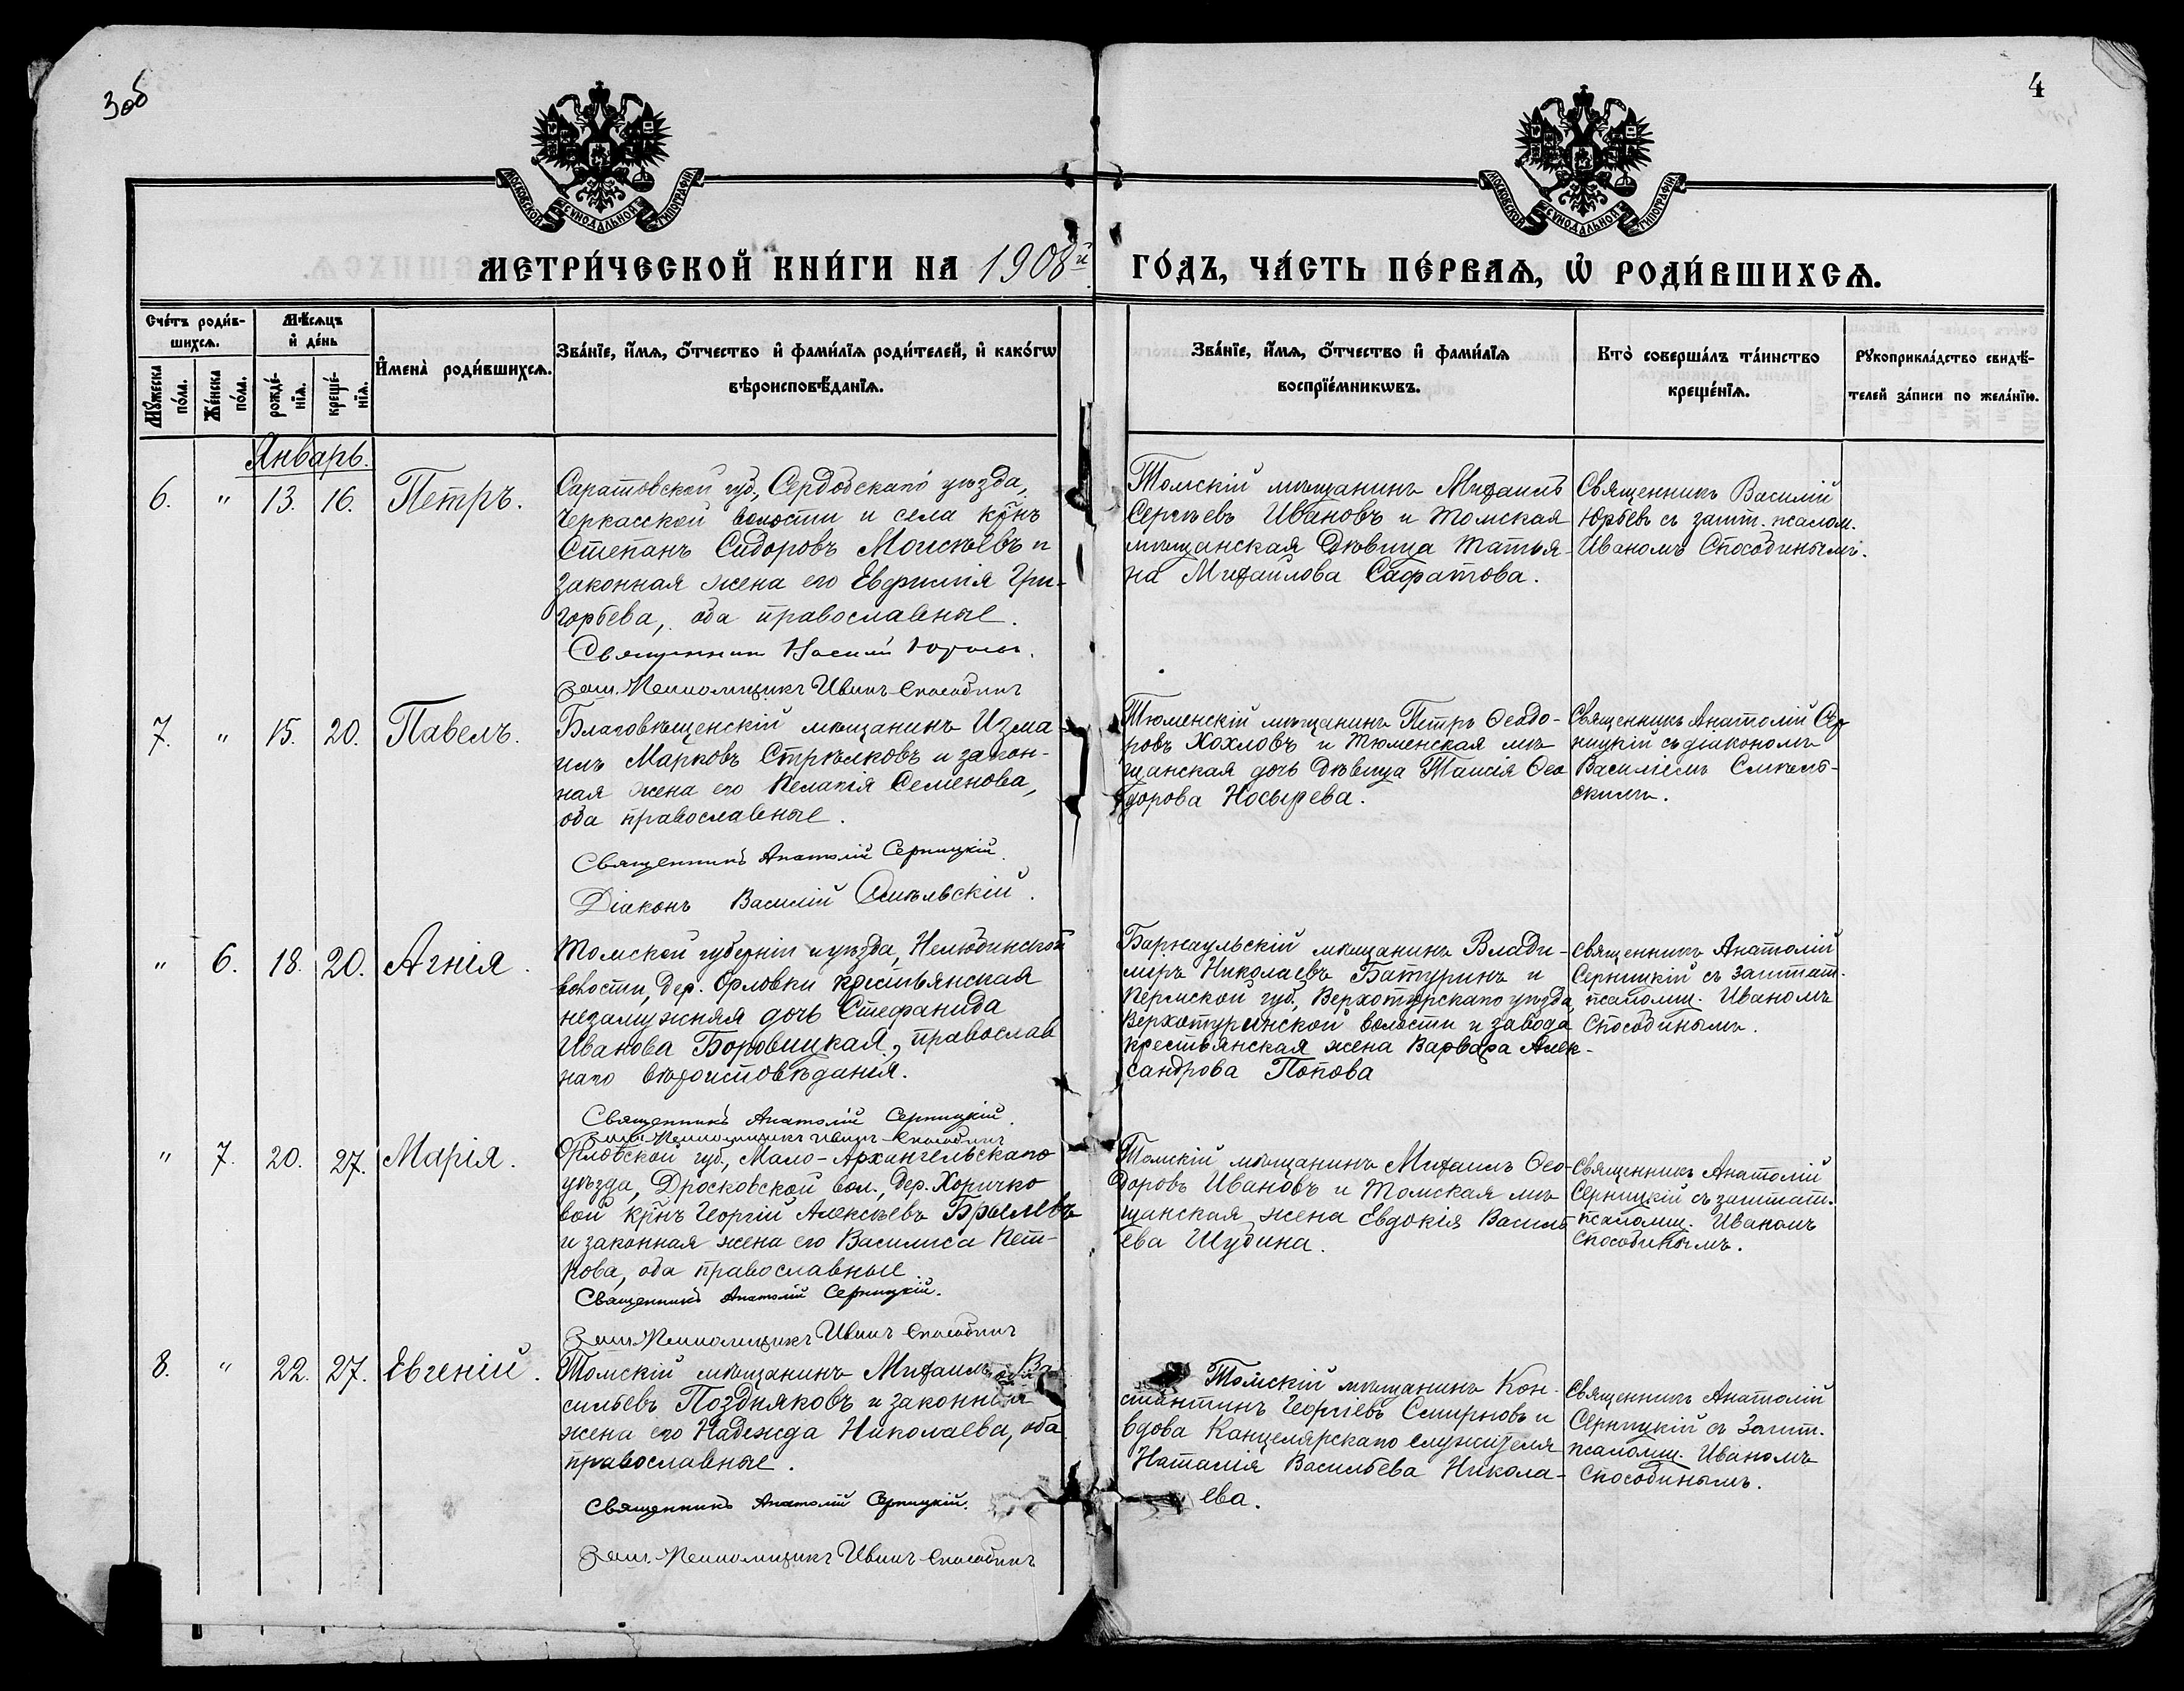 3об
4
МОСКОВСКОЙ СѴНОДАЛЬНОЙ ТИПОГРАФІИ
МОСКОВСКОЙ СѴНОДАЛЬНОЙ ТИПОГРАФІИ
МЕТРИ́ЧЕСКОЙ КНИ́ГИ НА 1908й ГО́ДЪ, ЧА́СТЬ ПЕ́РВАѦ, Ѡ҆ РОДИ́ВШИХСѦ.
Сче́тъ роди́в-
шихсѧ.
Му́жеска
по́ла.
Же́нска
по́ла.
Мѣ́сѧцъ
и҆ де́нь
рожде́-
нїѧ.
креще́-
нїѧ.
И҆мена̀ роди́вшихсѧ.
Зва́нїе, и҆́мѧ, ѻ҆́тчество и҆ фами́лїѧ роди́телей, и҆ како́гѡ
вѣроисповѣ́данїѧ.
Зва́нїе, и҆́мѧ, ѻ҆́тчество и҆ фами́лїѧ
воспрїе́мникѡвъ.
Кто̀ соверша́лъ та́инство
креще́нїѧ.
Рꙋкоприкла́дство свидѣ́-
телей за́писи по жела́нїю.
Январь.
6. " 13. 16. Петръ.
Саратовской губ., Сердобскаго уѣзда,
Черкасской волости и села кр̃нъ
Степанъ Сидоровъ Моисѣевъ и
законная жена его Евфимія Гри-
горьева, оба православные.
Священникъ Василій Юрьевъ.
заш. Псаломщикъ Иванъ Способинъ
Томскій мѣщанинъ Михаилъ
Сергѣевъ Ивановъ и томская
мѣщанская дѣвица Татья-
на Михайлова Сафатова.
Священникъ Василій
Юрьевъ съ зашт. псалом.
Иваномъ Способинымъ.
7. " 15. 20. Павелъ.
Благовѣщенскій мѣщанинъ Изма-
илъ Марковъ Стрѣлковъ и закон-
ная жена его Пелагія Семенова,
оба православные.
Священникъ Анатолій Серницкій.
Діаконъ Василій Смѣльскій.
Тюменскій мѣщанинъ Петръ Ѳеодо-
ровъ Хохловъ и тюменская мѣ-
щанская дочь дѣвица Таисія Ѳео
дорова Носырева.
Священникъ Анатолій Сер
ницкій съ діакономъ
Василіемъ Смѣль-
скимъ.
" 6. 18. 20. Агнія.
Томской губерніи и уѣзда, Нелюбинской
волости, дер. Орловки крестьянская
незамужняя дочь Стефанида
Иванова Боровицкая, православ
наго вѣроисповѣданія.
Священникъ Анатолій Серницкій.
заш. Псаломщикъ Иванъ Способинъ
Барнаульскій мѣщанинъ Влади-
міръ Николаевъ Батуринъ и
Пермской губ., Верхотурскаго уѣзда,
Верхотуринской волости и завода
крестьянская жена Варвара Алек-
сандрова Попова
Священникъ Анатолій
Серницкій съ заштат.
псаломщ. Иваномъ
Способинымъ.
" 7. 20. 27. Марія.
Орловской губ., Мало-Архангельскаго
уѣзда, Дросковской вол., дер. Хоричко
вой кр̃нъ Георгій Алексѣевъ Брылевъ
и законная жена его Василиса Пет-
рова, оба православные.
Священникъ Анатолій Серницкій.
заш. Псаломщикъ Иванъ Способинъ
Томскій мѣщанинъ Михаилъ Ѳео-
доровъ Ивановъ и томская мѣ
щанская жена Евдокія Василь
ева Шубина.
Священникъ Анатолій
Серницкій съ заштат.
псаломщ. Иваномъ
Способинымъ.
8. " 22. 27. Евгеній.
Томскій мѣщанинъ Михаилъ Ва
сильевъ Поздняковъ и законная
жена его Надежда Николаева, оба
православные.
Священникъ Анатолій Серницкій.
заш. Псаломщикъ Иванъ Способинъ
Томскій мѣщанинъ Кон-
стантинъ Георгіевъ Смирновъ и
вдова канцелярскаго служителя
Наталія Васильева Никола-
ева.
Священникъ Анатолій
Серницкій съ зашт.
псаломщ. Иваномъ
Способинымъ.